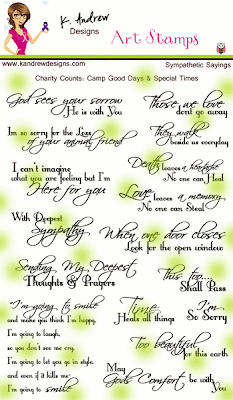 K. Andrew
Designs
Art Stamps
www.kandrewdesigns.com
Sympathetic Sayings
Charity Counts: Camp Good Days & Special Times
God sees your sorrow
He is with You
Those we love
dont go away
Im so sorry for the Loss
of your animal friend
They walk
beside us everyday
I can't imagine
what you are feeling but I'm
Here for you
Death leaves a heartache
No one can Heal
Love leaves a memory
No one can Steal
With Deepest
Sympathy
When one door closes
Look for the open window
Sending My Deepest
Thoughts & Prayers
This too...
Shall Pass
I'm going to smile
and make you think I'm happy,
I'm going to laugh,
so you don't see me cry,
I'm going to let you go in style,
and even if it kills me
I'm going to smile
Time
Heals all things
I'm
So Sorry
Too beautiful
for this earth
May
Gods Comfort be with
You